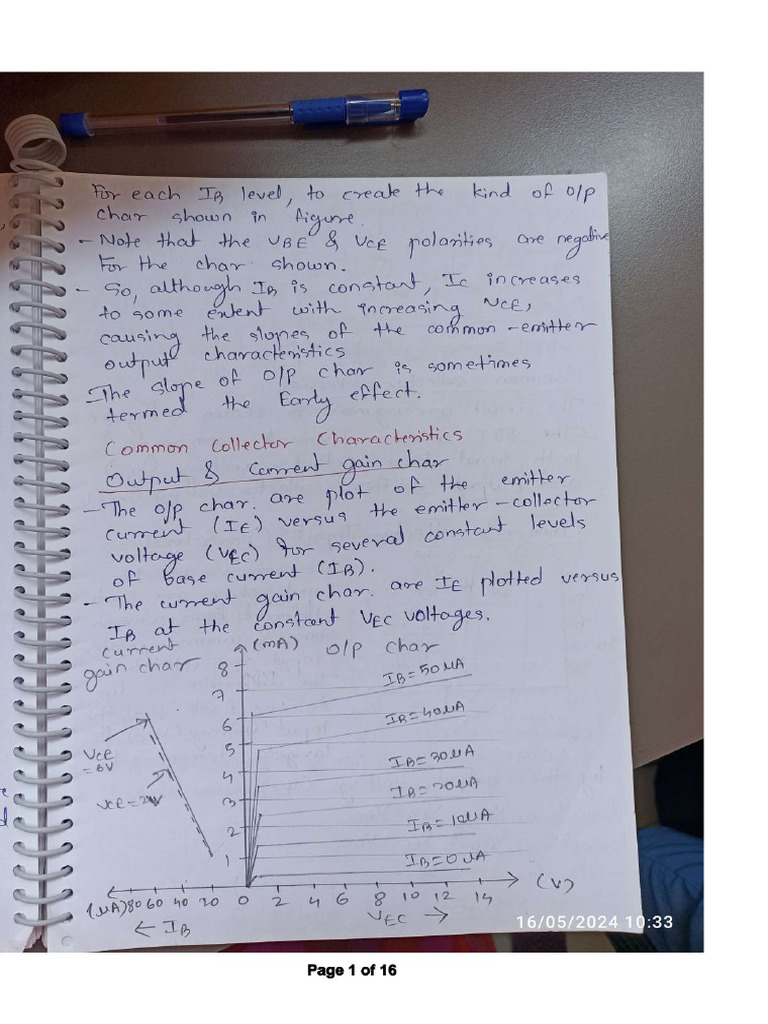 For each IB level, to create the kind of O/P
char shown in figure.
- Note that the VBE & VCE polarities are negative
For the char. shown.
- So, although IB is constant, IC increases
to some extent with increasing VCE,
causing the slopes of the common-emitter
output characteristics
- The slope of O/P char is sometimes
termed the Early effect.
Common Collector Characteristics
Output & Current gain char
- The O/P char. are plot of the emitter
current (IE) versus the emitter-collector
voltage (VEC) for several constant levels
of base current (IB).
- The current gain char. are IE plotted versus
IB at the constant VEC voltages.
current
gain char
(mA)
O/P char
8
7
6
5
4
3
2
1
IB=50μA
IB=40μA
IB=30μA
IB=20μA
IB=10μA
IB=0μA
VCE
=6V
VCE=2V
(μA) 80 60 40 20 0 2 4 6 8 10 12 14 (V)
← IB
VEC →
16/05/2024 10:33
Page 1 of 16